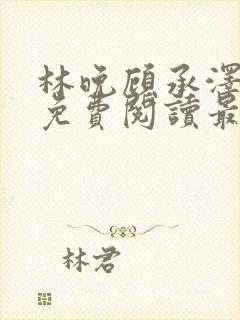 林晚顧承澤
免費閱讀最
林君